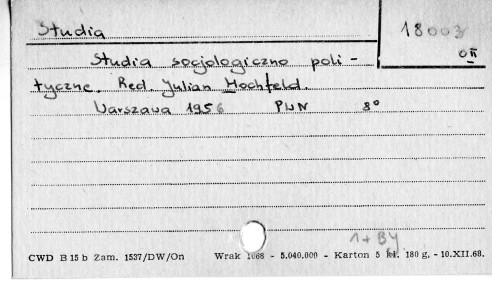 Studia
18003
0II
Studia socjologiczno poli-
tyczne. Red. Julian Hochfeld.
Warszawa 1956 PWN 8°
1 + BY
CWD B 15 b Zam. 1537/DW/On Wrak 1068 - 5.040.000 - Karton 5 kl. 180 g. - 10.XII.68.